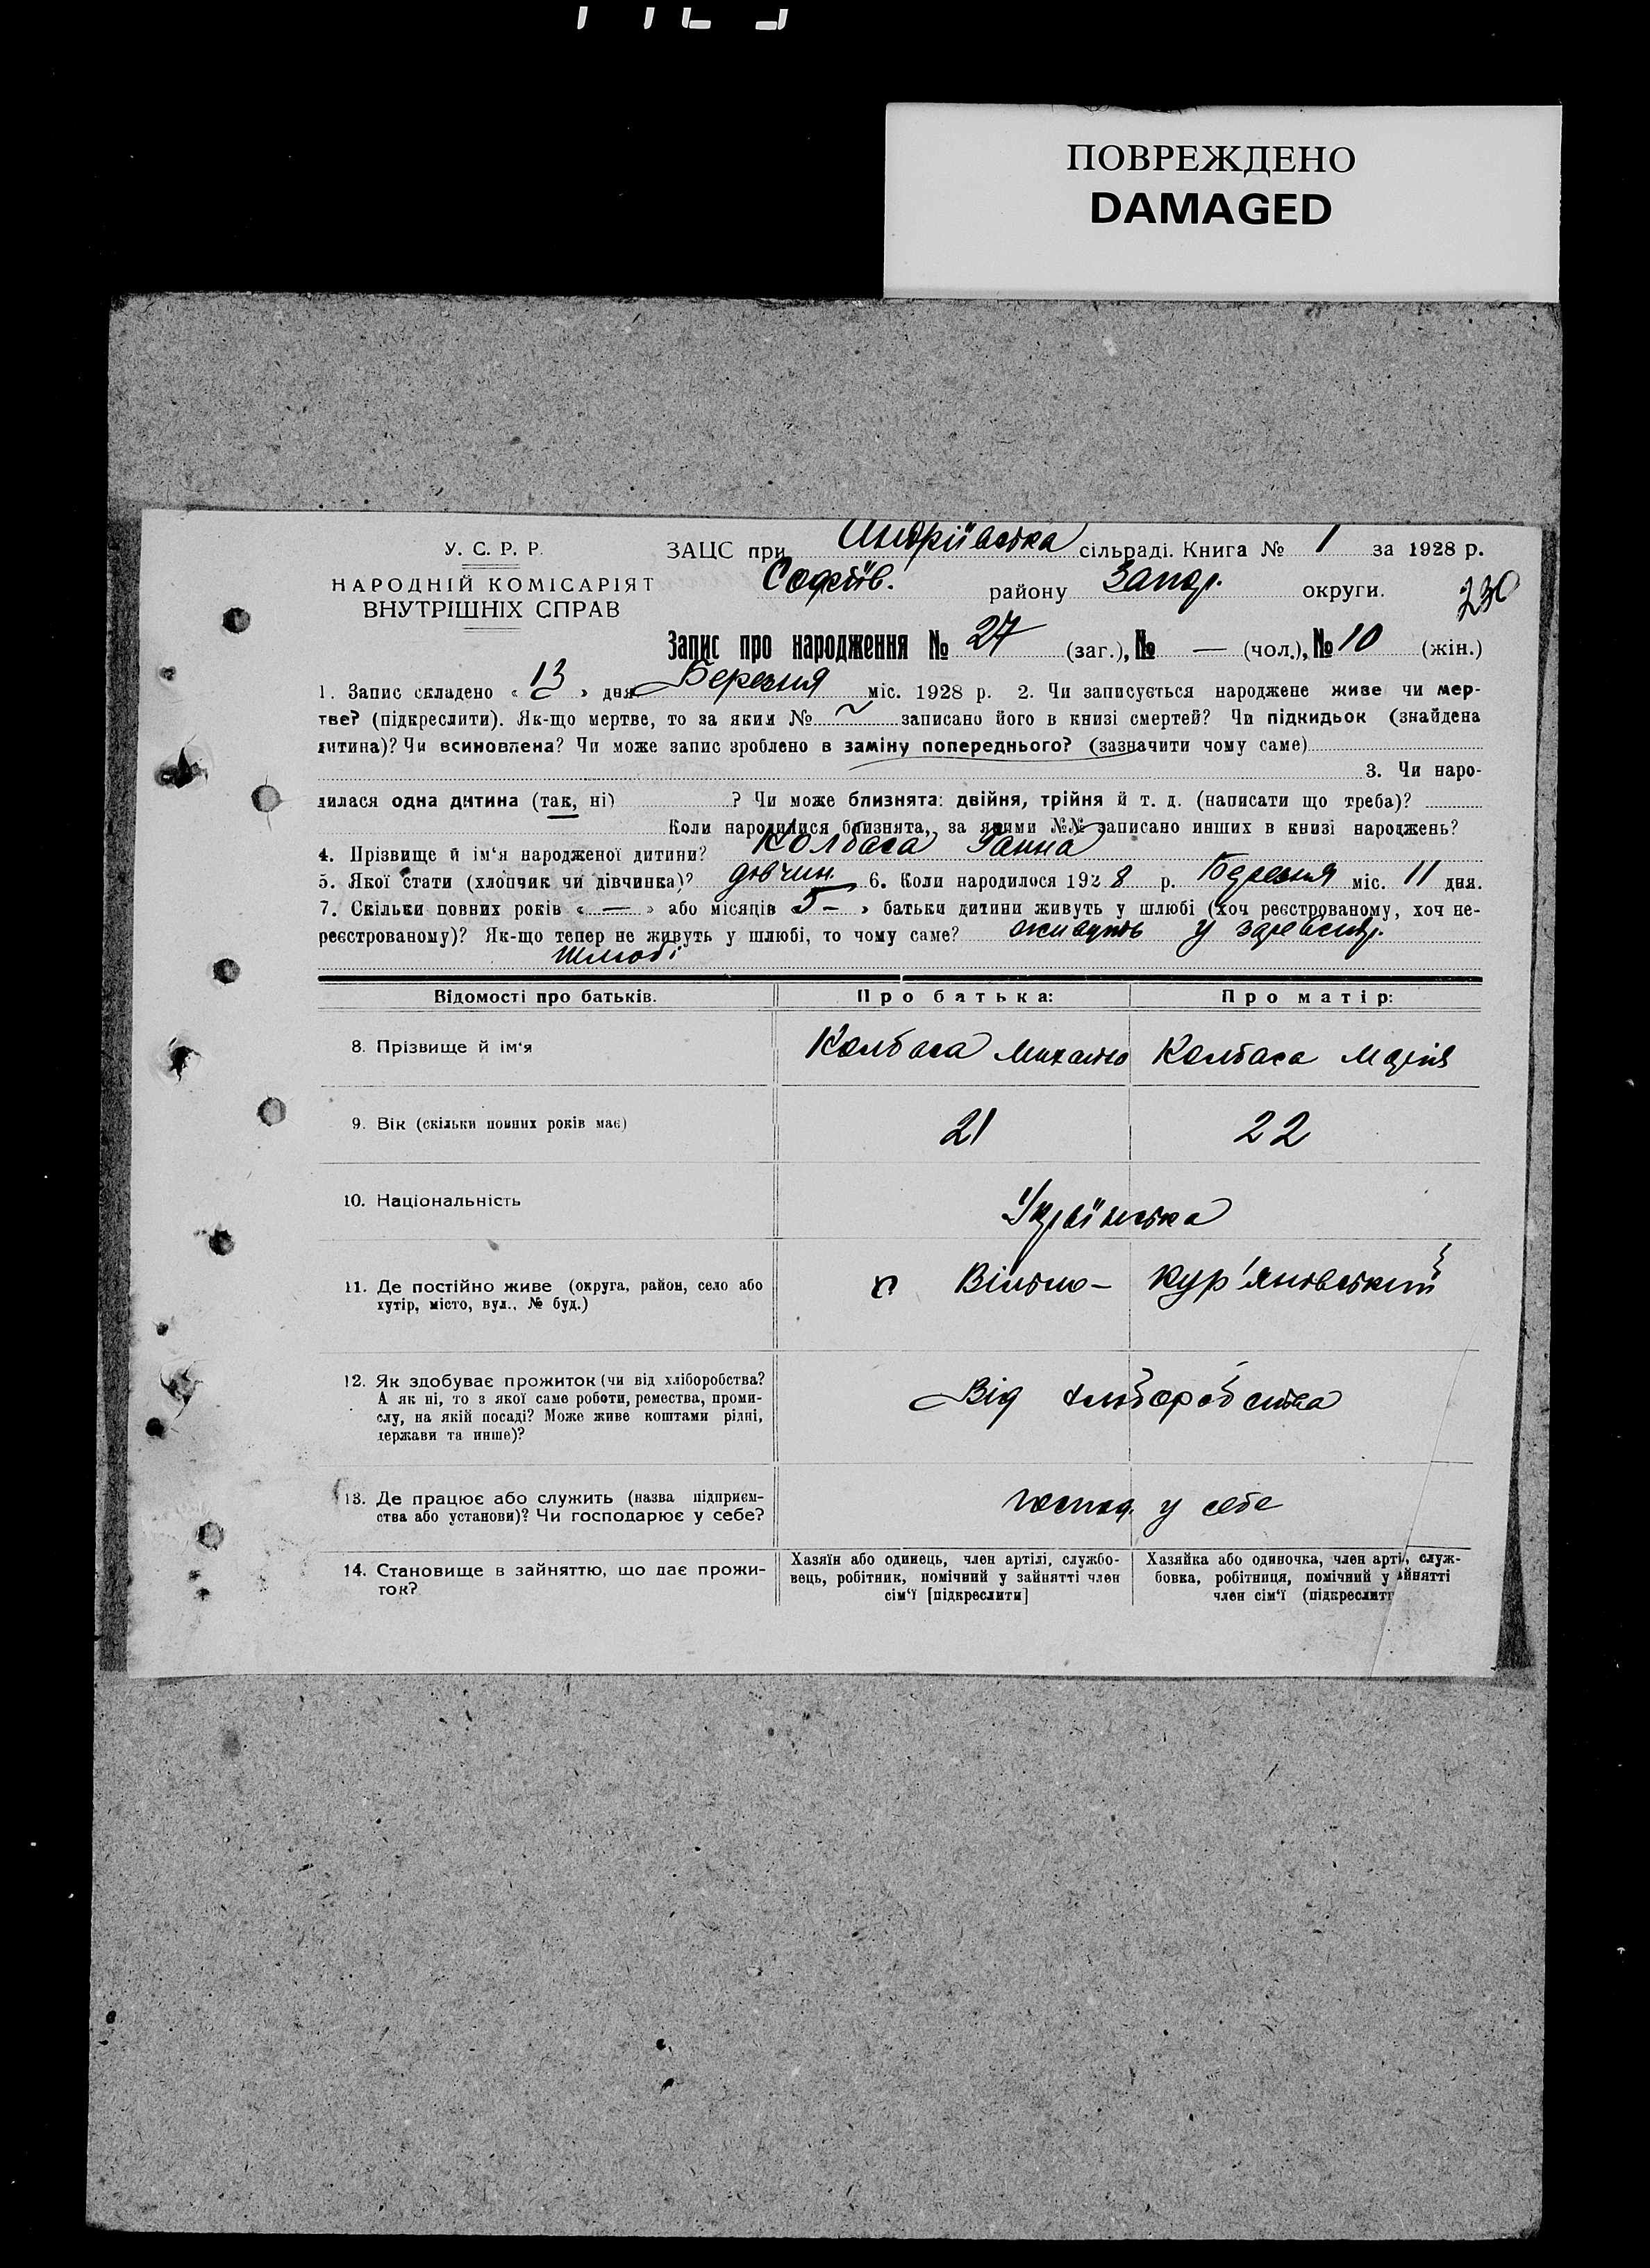 ПОВРЕЖДЕНО
DAMAGED
У. С. Р. Р.
НАРОДНІЙ КОМІСАРІЯТ
ВНУТРІШНІХ СПРАВ
ЗАЦС при Андріївська сільраді. Книга № 1 за 1928 р.
Софіїв. району Запор. округи.
230
Запис про народження № 27 (заг.), № — (чол.), № 10 (жін.)
1. Запис складено « 13 » дня Березня міс. 1928 р. 2. Чи записується народжене живе чи мер-
тве? (підкреслити). Як-що мертве, то за яким № ~ записано його в книзі смертей? Чи підкидьок (знайдена
дитина)? Чи всиновлена? Чи може запис зроблено в заміну попереднього? (зазначити чому саме)
3. Чи наро-
дилася одна дитина (так, ні) ? Чи може близнята: двійня, трійня й т. д. (написати що треба)?
Коли народилися близнята, за якими №№ записано инших в книзі народжень?
4. Прізвище й ім'я народженої дитини? Колбаса Ганна
5. Якої стати (хлопчяк чи дівчинка)? дівчин 6. Коли народилося 1928 р. Березня міс. 11 дня.
7. Скільки повних років « — » або місяців « 5 – » батьки дитини живуть у шлюбі (хоч реєстрованому, хоч не-
реєстрованому)? Як-що тепер не живуть у шлюбі, то чому саме? живуть у
шлюбі
Відомості про батьків. Про батька: Про матір:
8. Прізвище й ім'я Колбаса Михайло Колбаса Марія
9. Вік (скільки повних років має) 21 22
10. Національність Українська
11. Де постійно живе (округа, район, село або
хутір, місто, вул., № буд.) х Вільно- Кур'яновський
12. Як здобуває прожиток (чи від хліборобства?
А як ні, то з якої саме роботи, ремества, проми-
слу, на якій посаді? Може живе коштами рідні,
держави та инше)? Від хліборобства
13. Де працює або служить (назва підприєм-
ства або установи)? Чи господарює у себе? господ. у себе
14. Становище в зайняттю, що дає прожи-
ток?
Хазяїн або одинець, член артілі, службо-
вець, робітник, помічний у зайнятті член
сім'ї [підкреслити]
Хазяйка або одиночка, член арті, служ-
бовка, робітниця, помічний у айнятті
член сім'ї (підкреслит